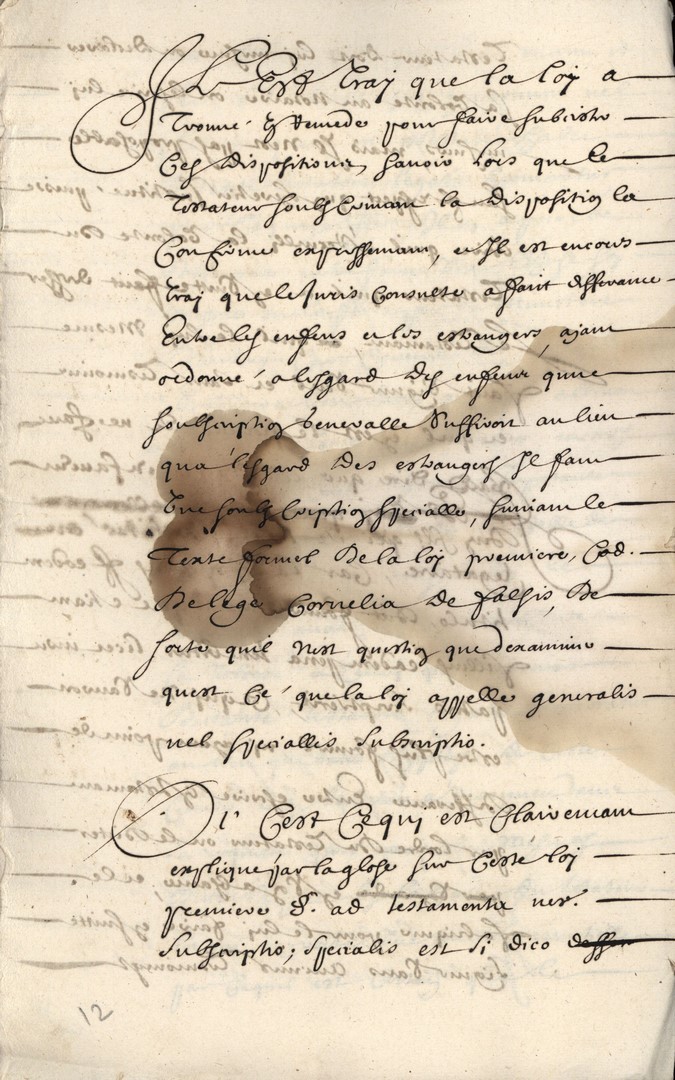 Il Est vray que la loy a
trouvé un remede pour faire subcister
ces dispositions, savoir lors que le
testateur soubscrivant la disposition la
confirme expressemant, et Il est encores
vray que le Juris Consulte a fait differance
Entre les enfens et les estrangers, ajant
ordonné a lesgard des enfens qune
soubscription generalle suffiroit au lieu
qua lesgard des estrangers Il faut
Une soubscription specialle, suivant le
Texte formel de la loy premiere, Cod.
de lege Cornelia de falsis, de
sorte quil nest question que dexaminer
quest ce que la loy appelle generalis
vel speciallis subscriptio.
Or Cest Ce quy est Clairemant
expliqué par la glose sur Ceste loy
premiere §. ad testamenta ver.
subscriptio; specialis est si dico
12